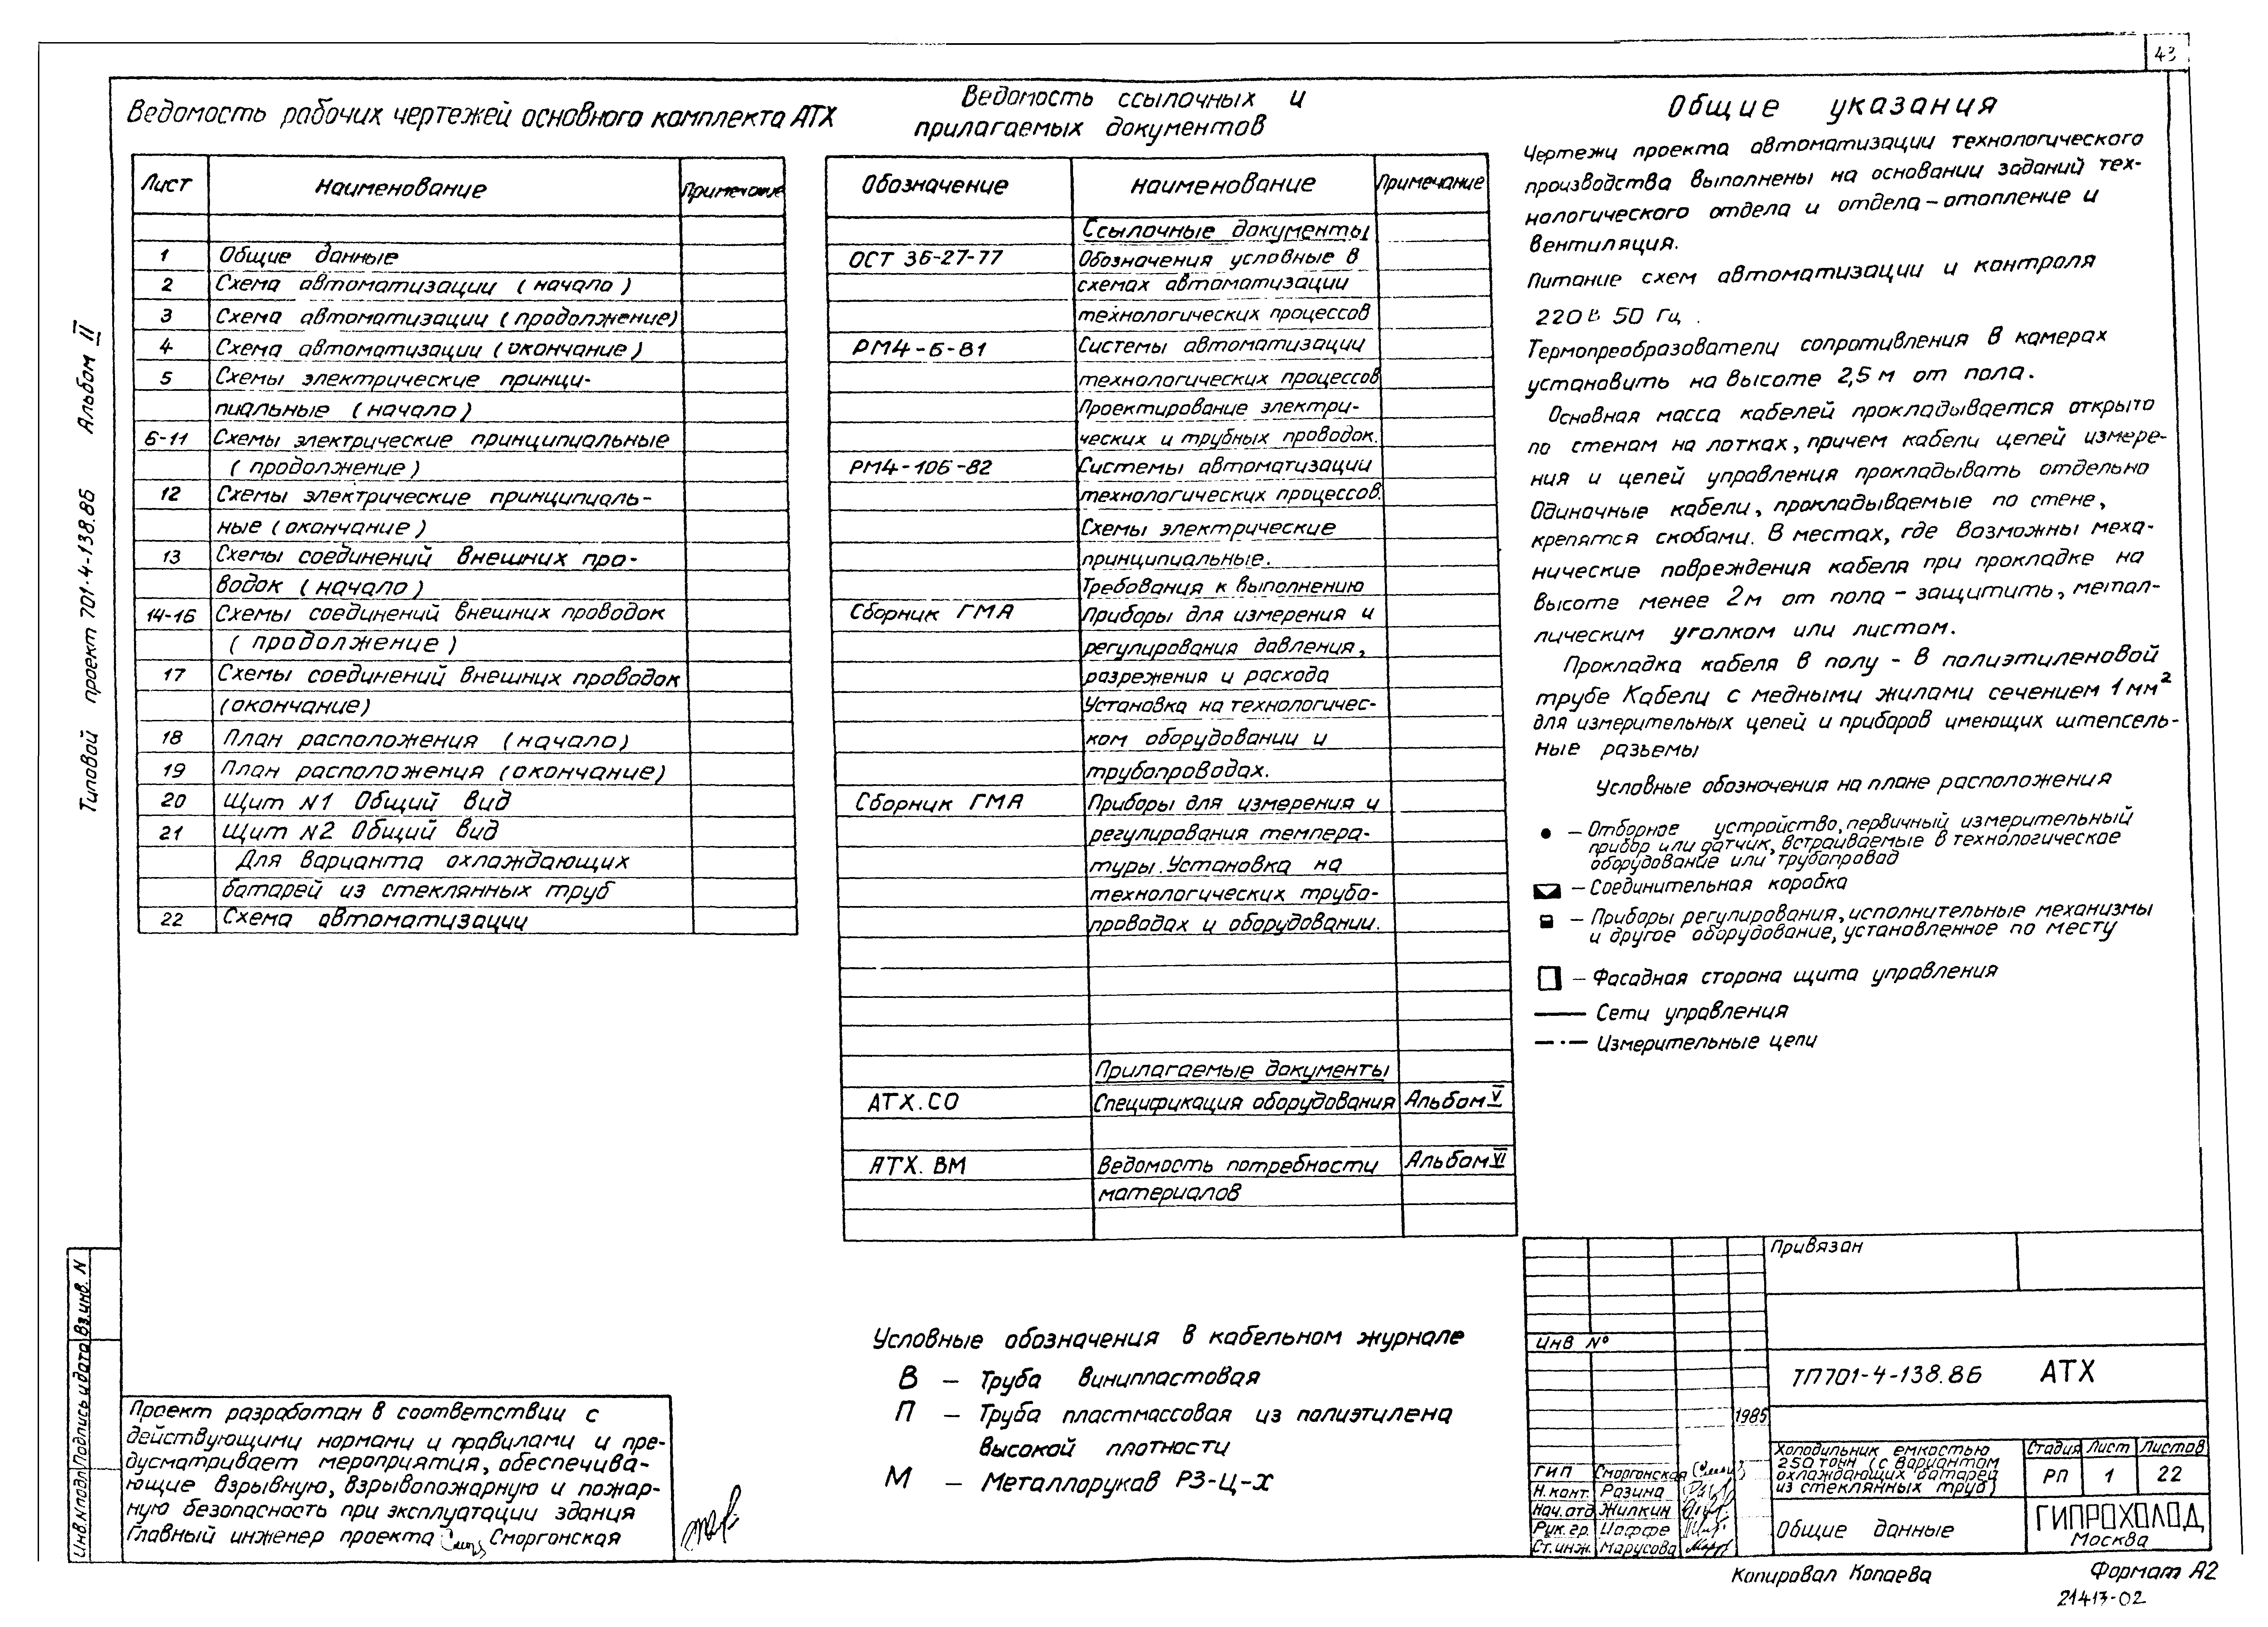 43
Типовой проект 701-4-138.86 Альбом II
Ведомость рабочих чертежей основного комплекта АТХ
Лист Наименование Примечание
1 Общие данные
2 Схема автоматизации (начало)
3 Схема автоматизации (продолжение)
4 Схема автоматизации (окончание)
5 Схемы электрические принци-
пиальные (начало)
6-11 Схемы электрические принципиальные
(продолжение)
12 Схемы электрические принципиаль-
ные (окончание)
13 Схемы соединений внешних про-
водок (начало)
14-16 Схемы соединений внешних проводок
(продолжение)
17 Схемы соединений внешних проводок
(окончание)
18 План расположения (начало)
19 План расположения (окончание)
20 Щит N1 Общий вид
21 Щит N2 Общий вид
Для варианта охлаждающих
батарей из стеклянных труб
22 Схема автоматизации
Ведомость ссылочных и
прилагаемых документов
Обозначение Наименование Примечание
Ссылочные документы
ОСТ 36-27-77 Обозначения условные в
схемах автоматизации
технологических процессов
РМ4-6-81 Системы автоматизации
технологических процессов
Проектирование электри-
ческих и трубных проводок.
РМ4-106-82 Системы автоматизации
технологических процессов.
Схемы электрические
принципиальные.
Требования к выполнению
Сборник ГМА Приборы для измерения и
регулирования давления,
разрежения и расхода
Установка на технологичес-
ком оборудовании и
трубопроводах.
Сборник ГМА Приборы для измерения и
регулирования темпера-
туры. Установка на
технологических трубо-
проводах и оборудовании.
Прилагаемые документы
АТХ.СО Спецификация оборудования Альбом V
АТХ. ВМ Ведомость потребности Альбом VI
материалов
Общие указания
Чертежи проекта автоматизации технологического
производства выполнены на основании заданий тех-
нологического отдела и отдела-отопление и
вентиляция.
Питание схем автоматизации и контроля
220 в 50 Гц.
Термопреобразователи сопротивления в камерах
установить на высоте 2,5 м от пола.
Основная масса кабелей прокладывается открыто
по стенам на лотках, причем кабели цепей измере-
ния и цепей управления прокладывать отдельно
Одиночные кабели, прокладываемые по стене,
крепятся скобами. В местах, где возможны меха-
нические повреждения кабеля при прокладке на
высоте менее 2м от пола - защитить, метал-
лическим уголком или листом.
Прокладка кабеля в полу - в полиэтиленовой
трубе Кабели с медными жилами сечением 1 мм²
для измерительных цепей и приборов имеющих штепсель-
ные разьемы
Условные обозначения на плане расположения
– Отборное устройство, первичный измерительный
прибор или датчик, встраиваемые в технологическое
оборудование или трубопровод
– Соединительная коробка
– Приборы регулирования, исполнительные механизмы
и другое оборудование, установленное по месту
– Фасадная сторона щита управления
Сети управления
Измерительные цепи
Условные обозначения в кабельном журнале
В – Труба винипластовая
П – Труба пластмассовая из полиэтилена
высокой плотности
М – Металлорукав РЗ-Ц-Х
Проект разработан в соответствии с
действующими нормами и правилами и пре-
дусматривает мероприятия, обеспечива-
ющие взрывную, взрывопожарную и пожар-
ную безопасность при эксплуатации здания
Главный инженер проекта Сморгонская
Инв.N подл Подпись и дата Вз.инв. N
Привязан
Инв №
ТП701-4-138.86 АТХ
1985
Холодильник емкостью
250 тонн (с вариантом
охлаждающих батарей
из стеклянных труб)
Стадия Лист Листов
РП 1 22
ГИП Сморгонская
Н.конт. Разина
Нач.отд Жилкин
Рук.гр. Иоффе
Ст.инж. Марусова
Общие данные
ГИПРОХОЛОД
Москва
Копировал Копаева
Формат А2
21413-02